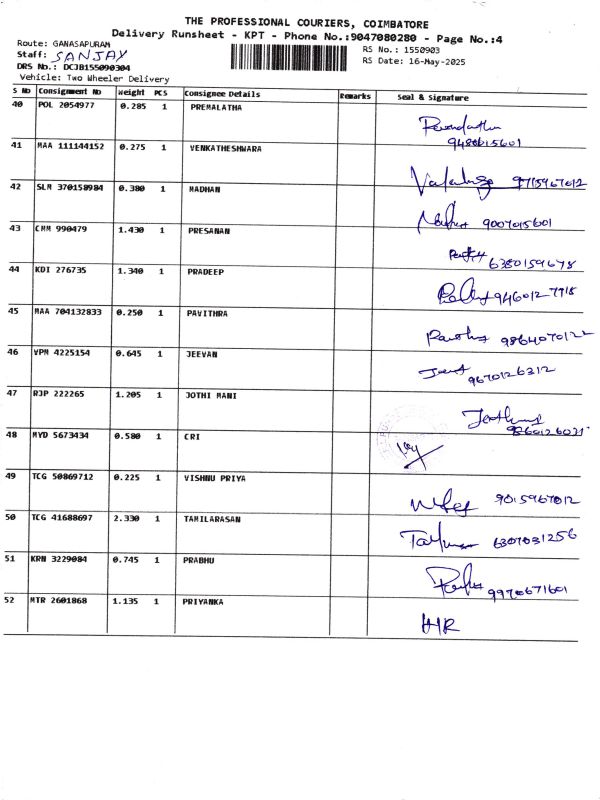 THE PROFESSIONAL COURIERS, COIMBATORE
Delivery Runsheet - KPT - Phone No.:9047080280 - Page No.:4
Route: GANASAPURAM
Staff: SANJAY
DRS No.: DCJB155090304
Vehicle: Two Wheeler Delivery
RS No.: 1550903
RS Date: 16-May-2025
S No Consignment No Weight PCS Consignee Details Remarks Seal & Signature
40 POL 2054977 0.285 1 PREMALATHA
9486015601
41 MAA 111144152 0.275 1 VENKATHESHWARA
9715967012
42 SLM 370158984 0.380 1 MADHAN
9007015601
43 CMM 990479 1.430 1 PRESANAN
6380159678
44 KDI 276735 1.340 1 PRADEEP
9460127718
45 MAA 704132833 0.250 1 PAVITHRA
9864070122
46 VPM 4225154 0.645 1 JEEVAN
9670126312
47 RJP 222265 1.205 1 JOTHI MANI
9860126031
48 MYD 5673434 0.580 1 CRI
49 TCG 50869712 0.225 1 VISHNU PRIYA
9015967012
50 TCG 41688697 2.330 1 TAMILARASAN
6307031256
51 KRN 3229084 0.745 1 PRABHU
9970671601
52 MTR 2601868 1.135 1 PRIYANKA
HR